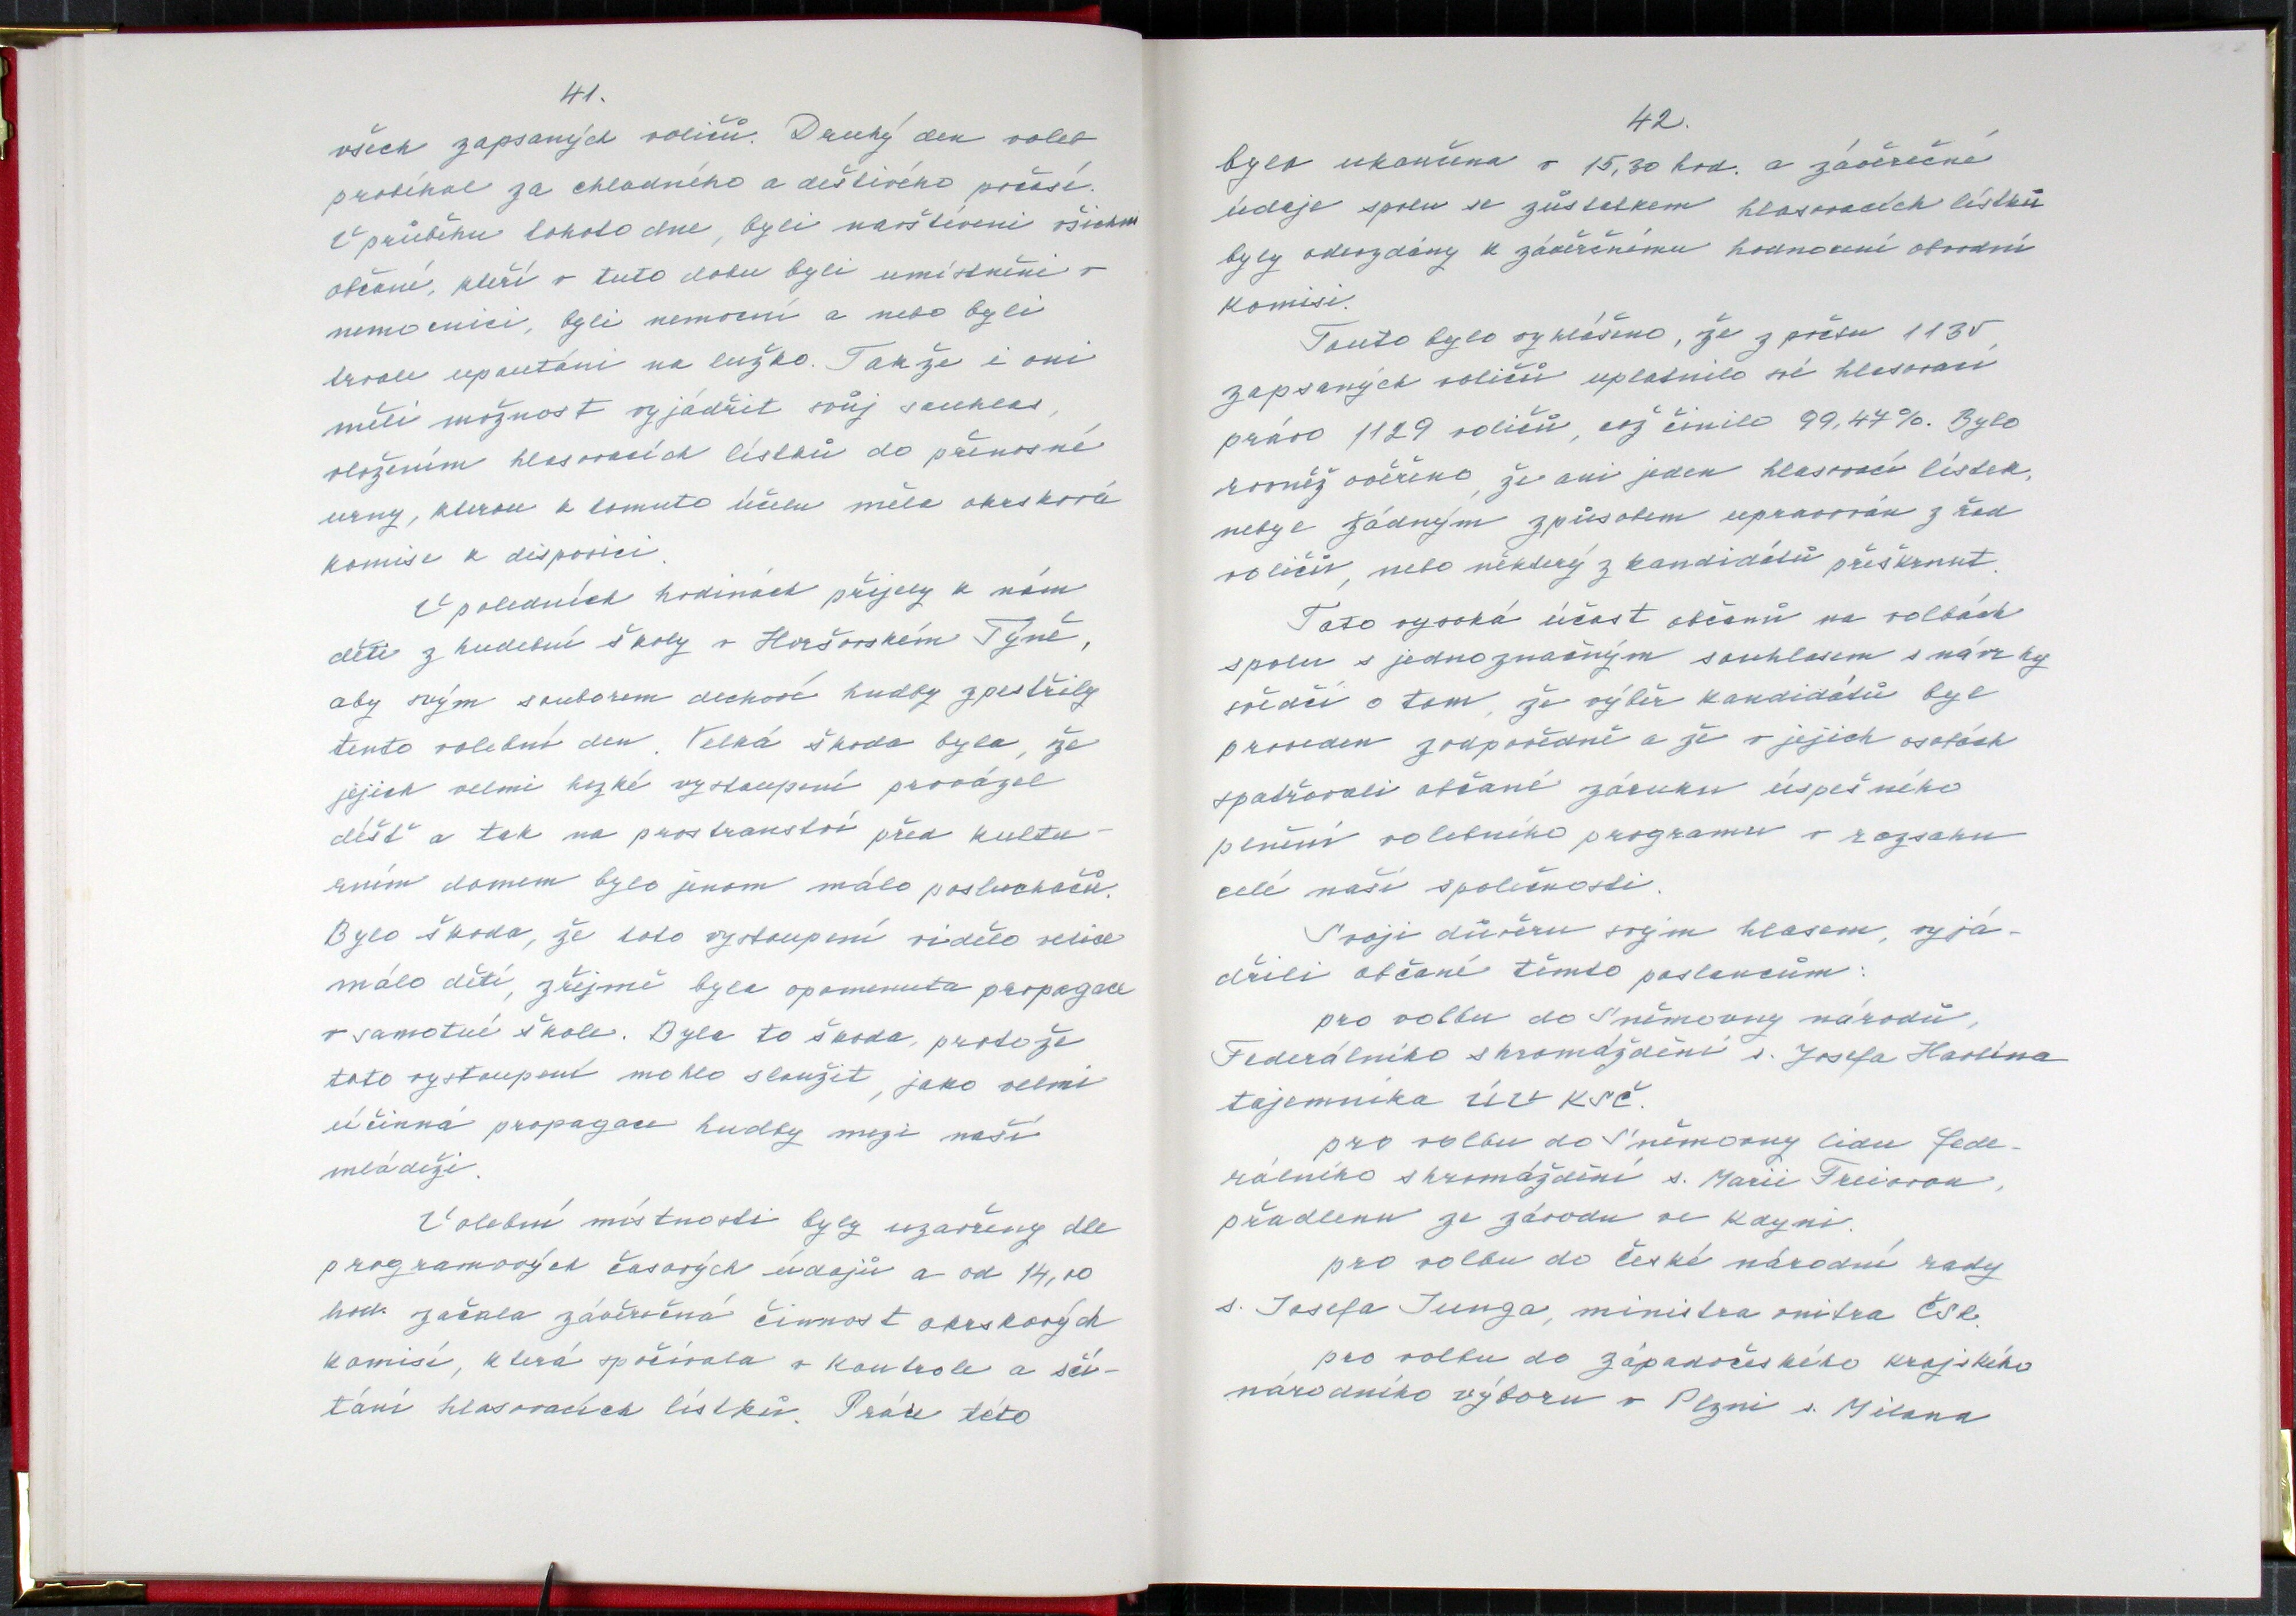 41.
všech zapsaných voličů. Druhý den voleb
probíhal za chladného a deštivého počasí.
V průběhu tohoto dne, byli navštíveni všichni
občané, kteří v tuto dobu byli umístněni v
nemocnici, byli nemocní a nebo byli
trvale upoutáni na lužko. Takže i oni
měli možnost vyjádřit svůj souhlas,
vložením hlasovacích lístků do přenosné
urny, kterou k tomuto účelu měla okrsková
komise k disposici.
V poledních hodinách přijely k nám
děti z hudební školy v Horšovském Týně,
aby svým souborem dechové hudby zpestřily
tento volební den. Velká škoda byla, že
jejich velmi hezké vystoupení provázel
déšť a tak na prostranství před kultu-
rním domem bylo jenom málo posluchačů.
Bylo škoda, že toto vystoupení vidělo velice
málo dětí, zřejmě byla opomenuta propagace
v samotné škole. Byla to škoda, protože
toto vystoupení mohlo sloužit, jako velmi
účinná propagace hudby mezi naší
mládeži.
Volební místnosti byly uzavřeny dle
programových časových údajů a od 14,00
hod. začala závěročná činnost okrskových
komisí, která spočívala v kontrole a sčí-
tání hlasovacích lístků. Práce této
42.
byla ukončena v 15,30 hod. a závěrečné
údaje spolu se zůstatkem hlasovacích lístků
byly odevzdány k závěrčnému hodnocení obvodní
komisi.
Touto bylo vyhlášeno, že z počtu 1135
zapsaných voličů uplatnilo své hlasovací
právo 1129 voličů, což činilo 99,47%. Bylo
rovněž ověřeno, že ani jeden hlasovací lístek,
nebyl žádným způsobem upravován z řad
voličů, nebo některý z kandidátů přeškrnut.
Tato vysoká účast občanů na volbách
spolu s jednoznačným souhlasem s návrhy
svědčí o tom, že výběr kandidátů byl
proveden zodpovědně a že v jejich osobách
spatřovali občané záruku úspešného
plnění volebního programu v rozsahu
celé naší společnosti.
Svoji důvěru svým hlasem, vyjá-
dřili občané těmto poslancům:
pro volbu do Sněmovny národů,
Federálního shromáždění s. Josefa Havlína
tajemníka ÚV KSČ.
pro volbu do Sněmovny lidu fede-
rálního shromáždění s. Marii Freiovou,
přadlenu ze závodu ve Kdyni.
pro volbu do české národní rady
s. Josefa Junga, ministra vnitra ČSR.
pro volbu do západočeského krajského
národního výboru v Plzni s. Milana